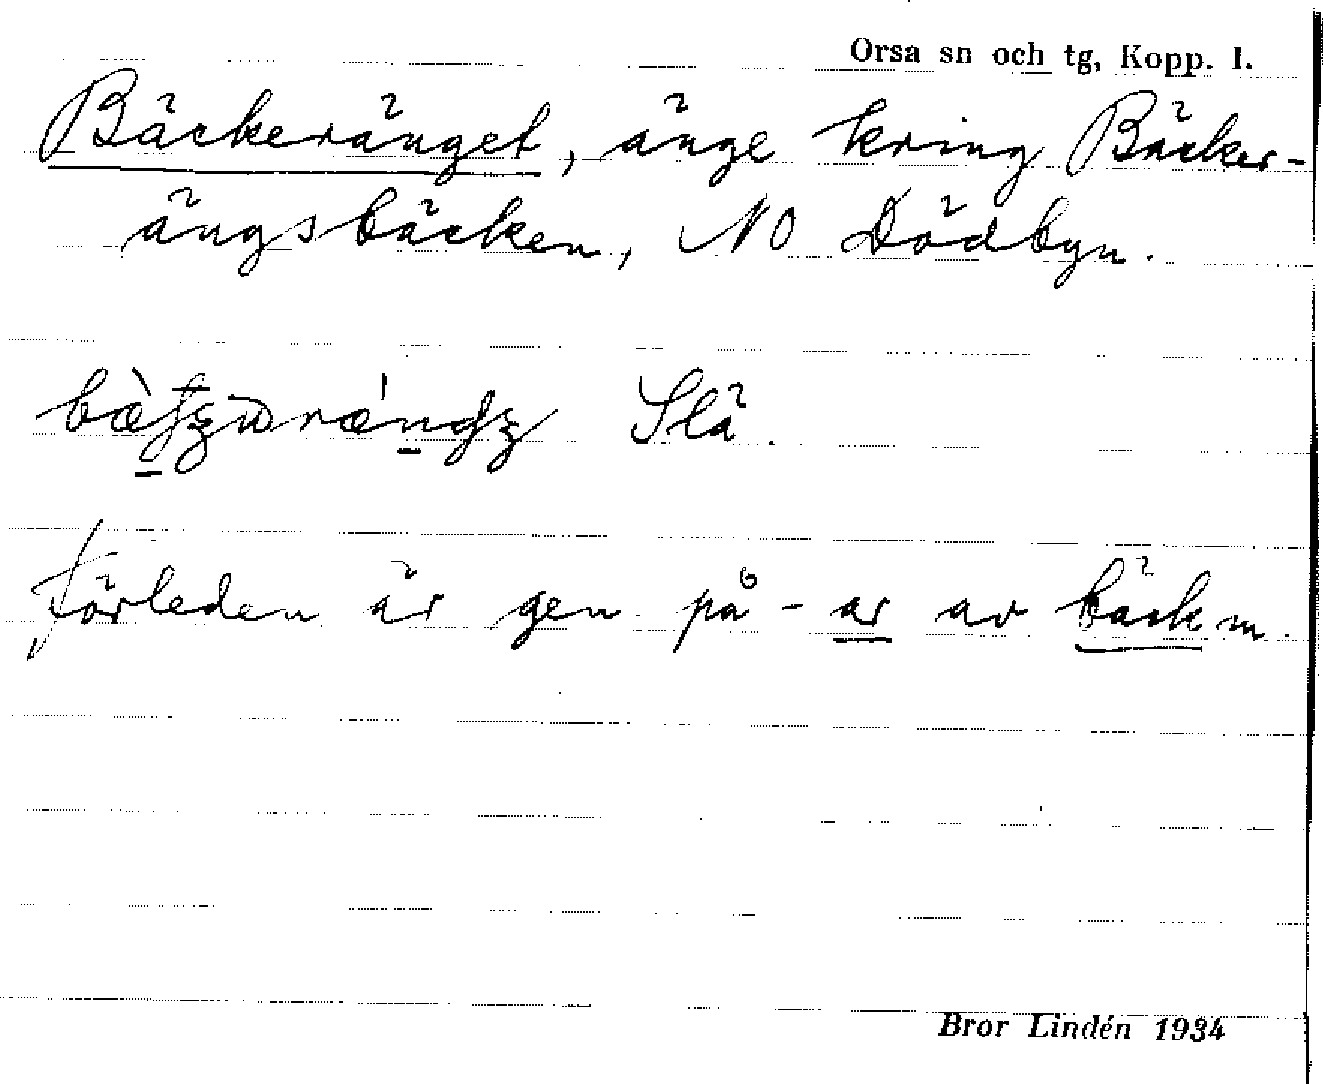 Orsa sn och tg, Kopp. l.
Bäckeränget, änge kring Bäcker-
ängsbäcken, NO Dödbyn.
Slä.
förleden är gen på -ar av bäck m.
Bror Lindén 1934